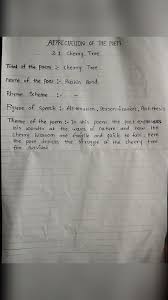 APPRECIATION OF THE POEM
2.1 Cherry Tree.
Title of the poem :- Cherry Tree.
Name of the Poet :- Ruskin Bond.
Rhyme Scheme :- -
Figure of Speech :- Alliteration, Personification, Antithesis
Theme of the poem :- In this poem the poet expresses
his wonder at the ways of nature and how the
cherry blossom are fragile and quick to fall; here
the poet depicts the struggle of the cherry tree
for survival